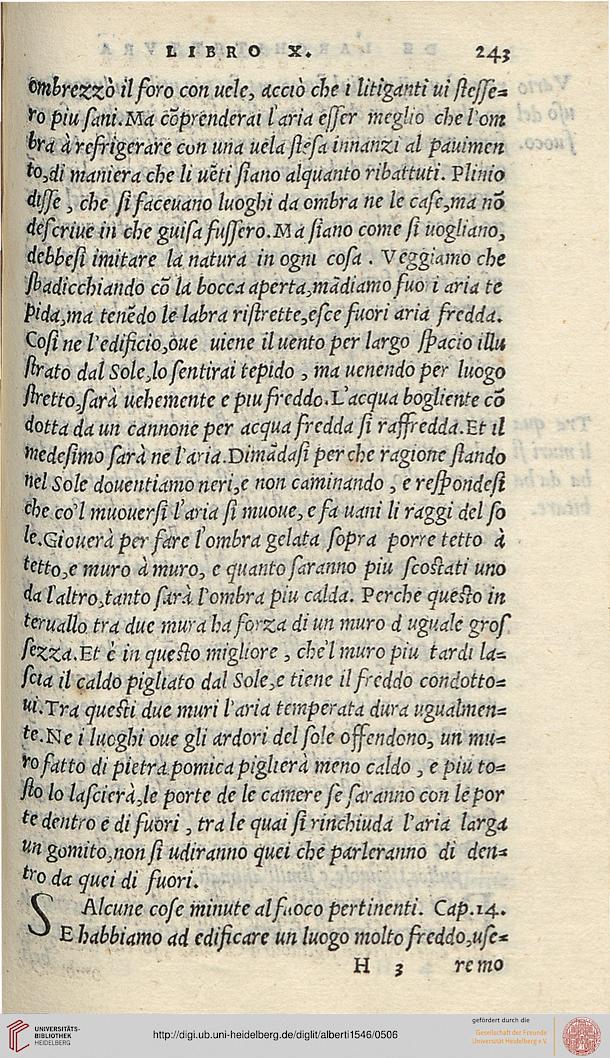 LIBRO X. 243
ombrezzò il foro con uele, acciò che i litiganti ui ſteſſe=
ro piu ſani. Ma cõprenderai l'aria eſſer meglio che l'om
bra à refrigerare con una uela ſteſa innanzi al pauimen
to, di maniera che li uẽti ſiano alquanto ribattuti. Plinio
diſſe, che ſi faceuano luoghi da ombra ne le caſe, ma nõ
deſcriue in che guiſa fuſſero. Ma ſiano come ſi uogliano,
debbeſi imitare la natura in ogni coſa. Veggiamo che
ſbadicchiando cõ la bocca aperta, mãdiamo fuori aria te
pida, ma tenẽdo le labra riſtrette, eſce fuori aria fredda.
Coſi ne l'edificio, oue uiene il uento per largo ſpacio illu
ſtrato dal Sole, lo ſentirai tepido, ma uenendo per luogo
ſtretto, ſarà uehemente e piu freddo. L'acqua bogliente cõ
dotta da un cannone per acqua fredda ſi raffredda. Et il
medeſimo ſarà ne l'aria. Dimãdaſi perche ragione ſtando
nel Sole douentiamo neri, e non caminando, e reſpondeſi
che co'l muouerſi l'aria ſi muoue, e fa uani li raggi del ſo
le. Giouerà per fare l'ombra gelata ſopra porre tetto à
tetto, e muro à muro, e quanto ſaranno piu ſcoſtati uno
da l'altro, tanto ſarà l'ombra piu calda. Perche queſto in
teruallo tra due mura ha forza di un muro d uguale groſ
ſezza. Et è in queſto migliore, che'l muro piu tardi la=
ſcia il caldo pigliato dal Sole, e tiene il freddo condotto=
ui. Tra queſti due muri l'aria temperata dura ugualmen=
te. Ne i luoghi oue gli ardori del ſole offendono, un mu=
ro fatto di pietra pomica piglierà meno caldo, e più to=
ſto lo laſcierà, le porte de le camere ſe ſaranno con le por
te dentro e di fuori, tra le quai ſi rinchiuda l'aria larga
un gomito, non ſi udiranno quei che parleranno di den=
tro da quei di fuori.
Alcune coſe minute al fuoco pertinenti. Cap. 14.
SE habbiamo ad edificare un luogo molto freddo, uſe=
H 3 remo
UNIVERSITÄTS-
BIBLIOTHEK
HEIDELBERG
http://digi.ub.uni-heidelberg.de/diglit/alberti1546/0506
gefördert durch die
Gesellschaft der Freunde
Universität Heidelberg e.V.